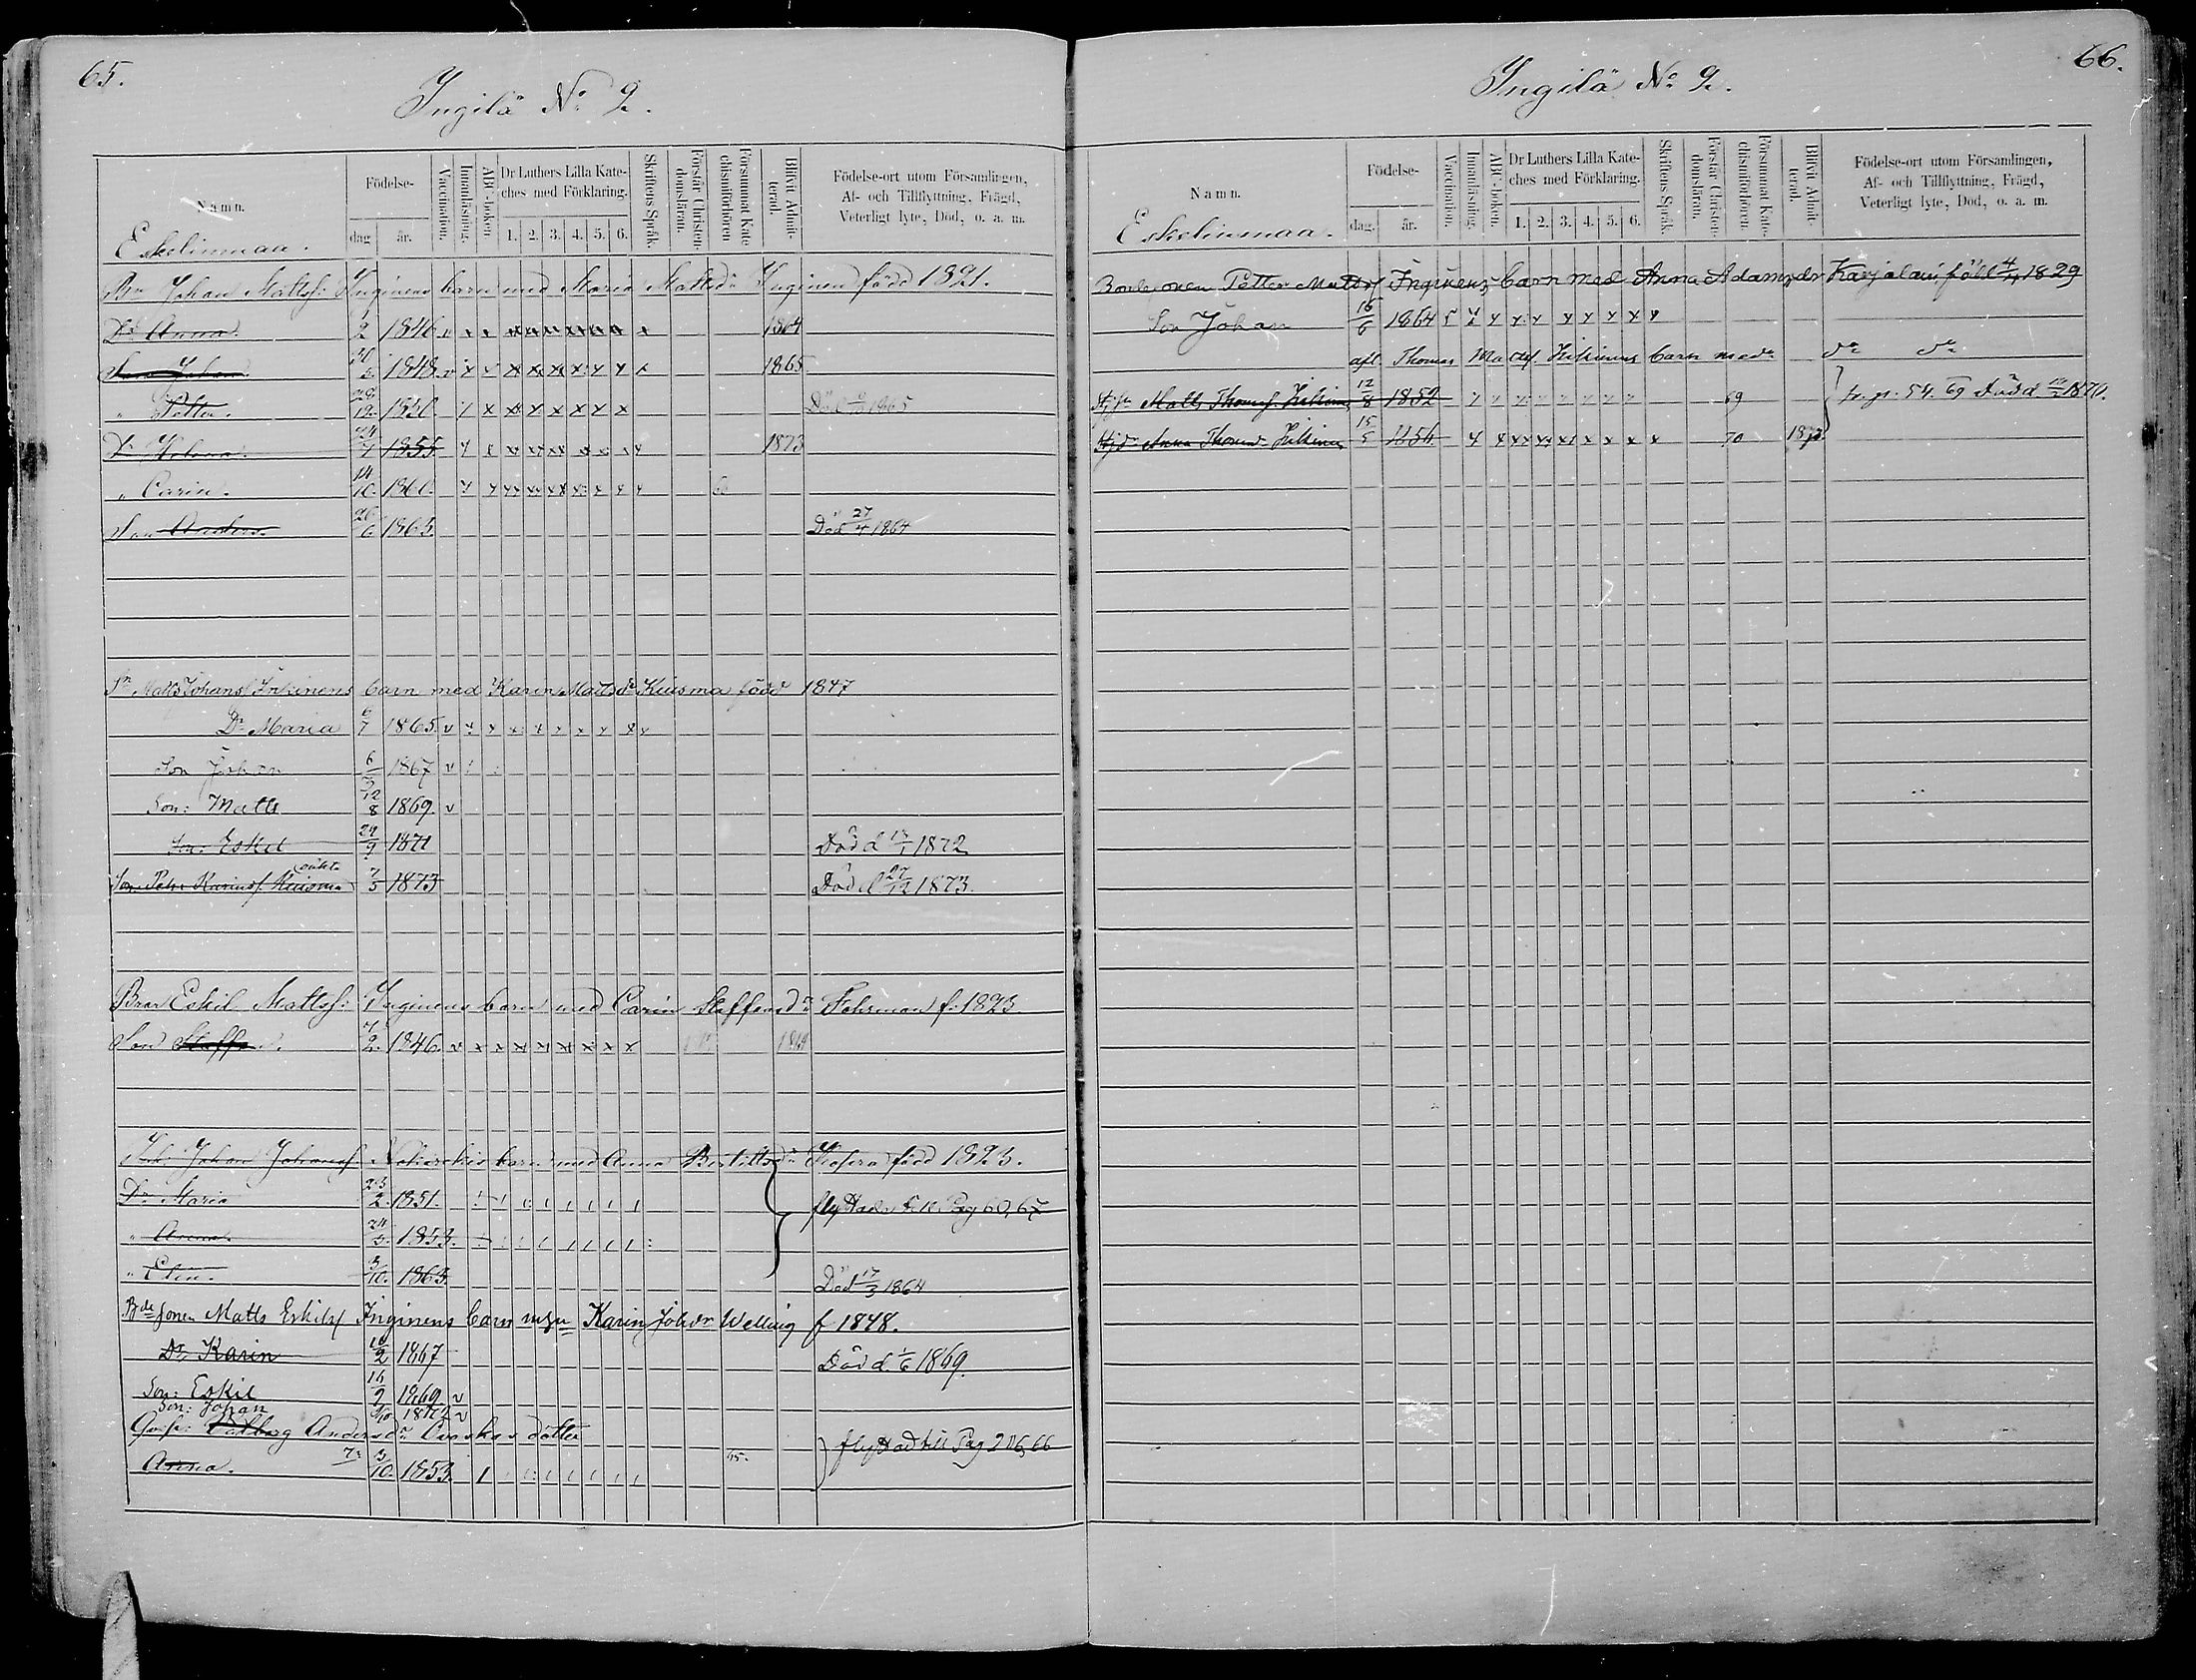 65.
Ingilä No 2.
Namn.
Födelse-
dag
år.
Vaccination.
Innanläsning.
ABC-boken
Dr Luthers Lilla Kate-
ches med Förklaring.
1. 2. 3. 4. 5. 6.
Skriftens Språk.
Förstår Christen-
domsläran.
Försummat Kate
chismiförhören
Blifvit Admit-
terad.
Födelse-ort utom Församlingen,
Af- och Tillflyttning, Frägd,
Veterligt lyte, Död, o. a. m.
Eskelinmaa.
Bn Johan Mattsf: Inginens barn med Maria Mattsdr Inginen född 1821.
Dr Anna. 1/2 1846. v x x x x x x x x x 1864
Son Johan. 1848. v x x x x x x x x 1865
" Petter. 28/12 1850. x x x x x x x x Död 1865
Dr Helena. 24/7 1855 1873
" Carin. 14/10. 1860.
Son Anders. 26/6 1863. Död 27/4 1864
Sn Matts Johansf Inginens barn med Karin Mattsdr Kuisma född 1847
Dr Maria 6/7 1865. v
Son Johan 6/3 1867 v
Son: Matts 12/8 1869. v
Son: Eskel 29/9 1871 Död d 1872
oäkta
Son Petr Karinsf Kuisma 7/5 1873 Död d 27/12 1873.
Bror Eskil Mattsf: Inginens barn med Carin Staffansd: Fohrman f. 1823.
Son Staffan. 7/2. 1846. v x x x x x x x x
Johan Johansf barn med Anna Bertilsdr född 1823.
Dr Maria 23/2. 1851. flyttade till Pag 60, 67
" Anna. 24/5. 1853.
" Elin. 3/10. 1863. Död 17/3 1864
Bde Sonen Matts Eskilsf Inginens barn med Karin Johdr Welling f 1848.
Dr, Karin 10/2 1867 Död d. 1/6 1869.
Son: Eskil 16/9 1869 v
Son: Johan 1872 v
Valborg Andersdr dotter
Anna. 3/10. 1853. flyttad till Pag 216, 66
66.
Ingilä No 2.
Namn.
Födelse-
dag.
år.
Vaccination.
Innanläsning.
ABC-boken.
Dr Luthers Lilla Kate-
ches med Förklaring.
1. 2. 3. 4. 5. 6.
Skriftens Språk.
Förstår Christen-
domsläran.
Försummat Kate-
chismiförhören.
Blifvit Admit-
terad.
Födelse-ort utom Församlingen,
Af- och Tillflyttning, Frägd,
Veterligt lyte, Död, o. a. m.
Eskelinmaa.
Petter Mattsf Inginens barn med Anna Adamsdr Karjalain, född 4/4 1829
Son Johan 16/6 1864
afl. Thomas Mattsf. Hilsinens barn med dn dn
Matts Thomsf. Hilsinen 12/8 1852 69 fr. p. 54. 69 Död d 1870.
Anna Thomsdr Hilsinen 15/5 1854 70